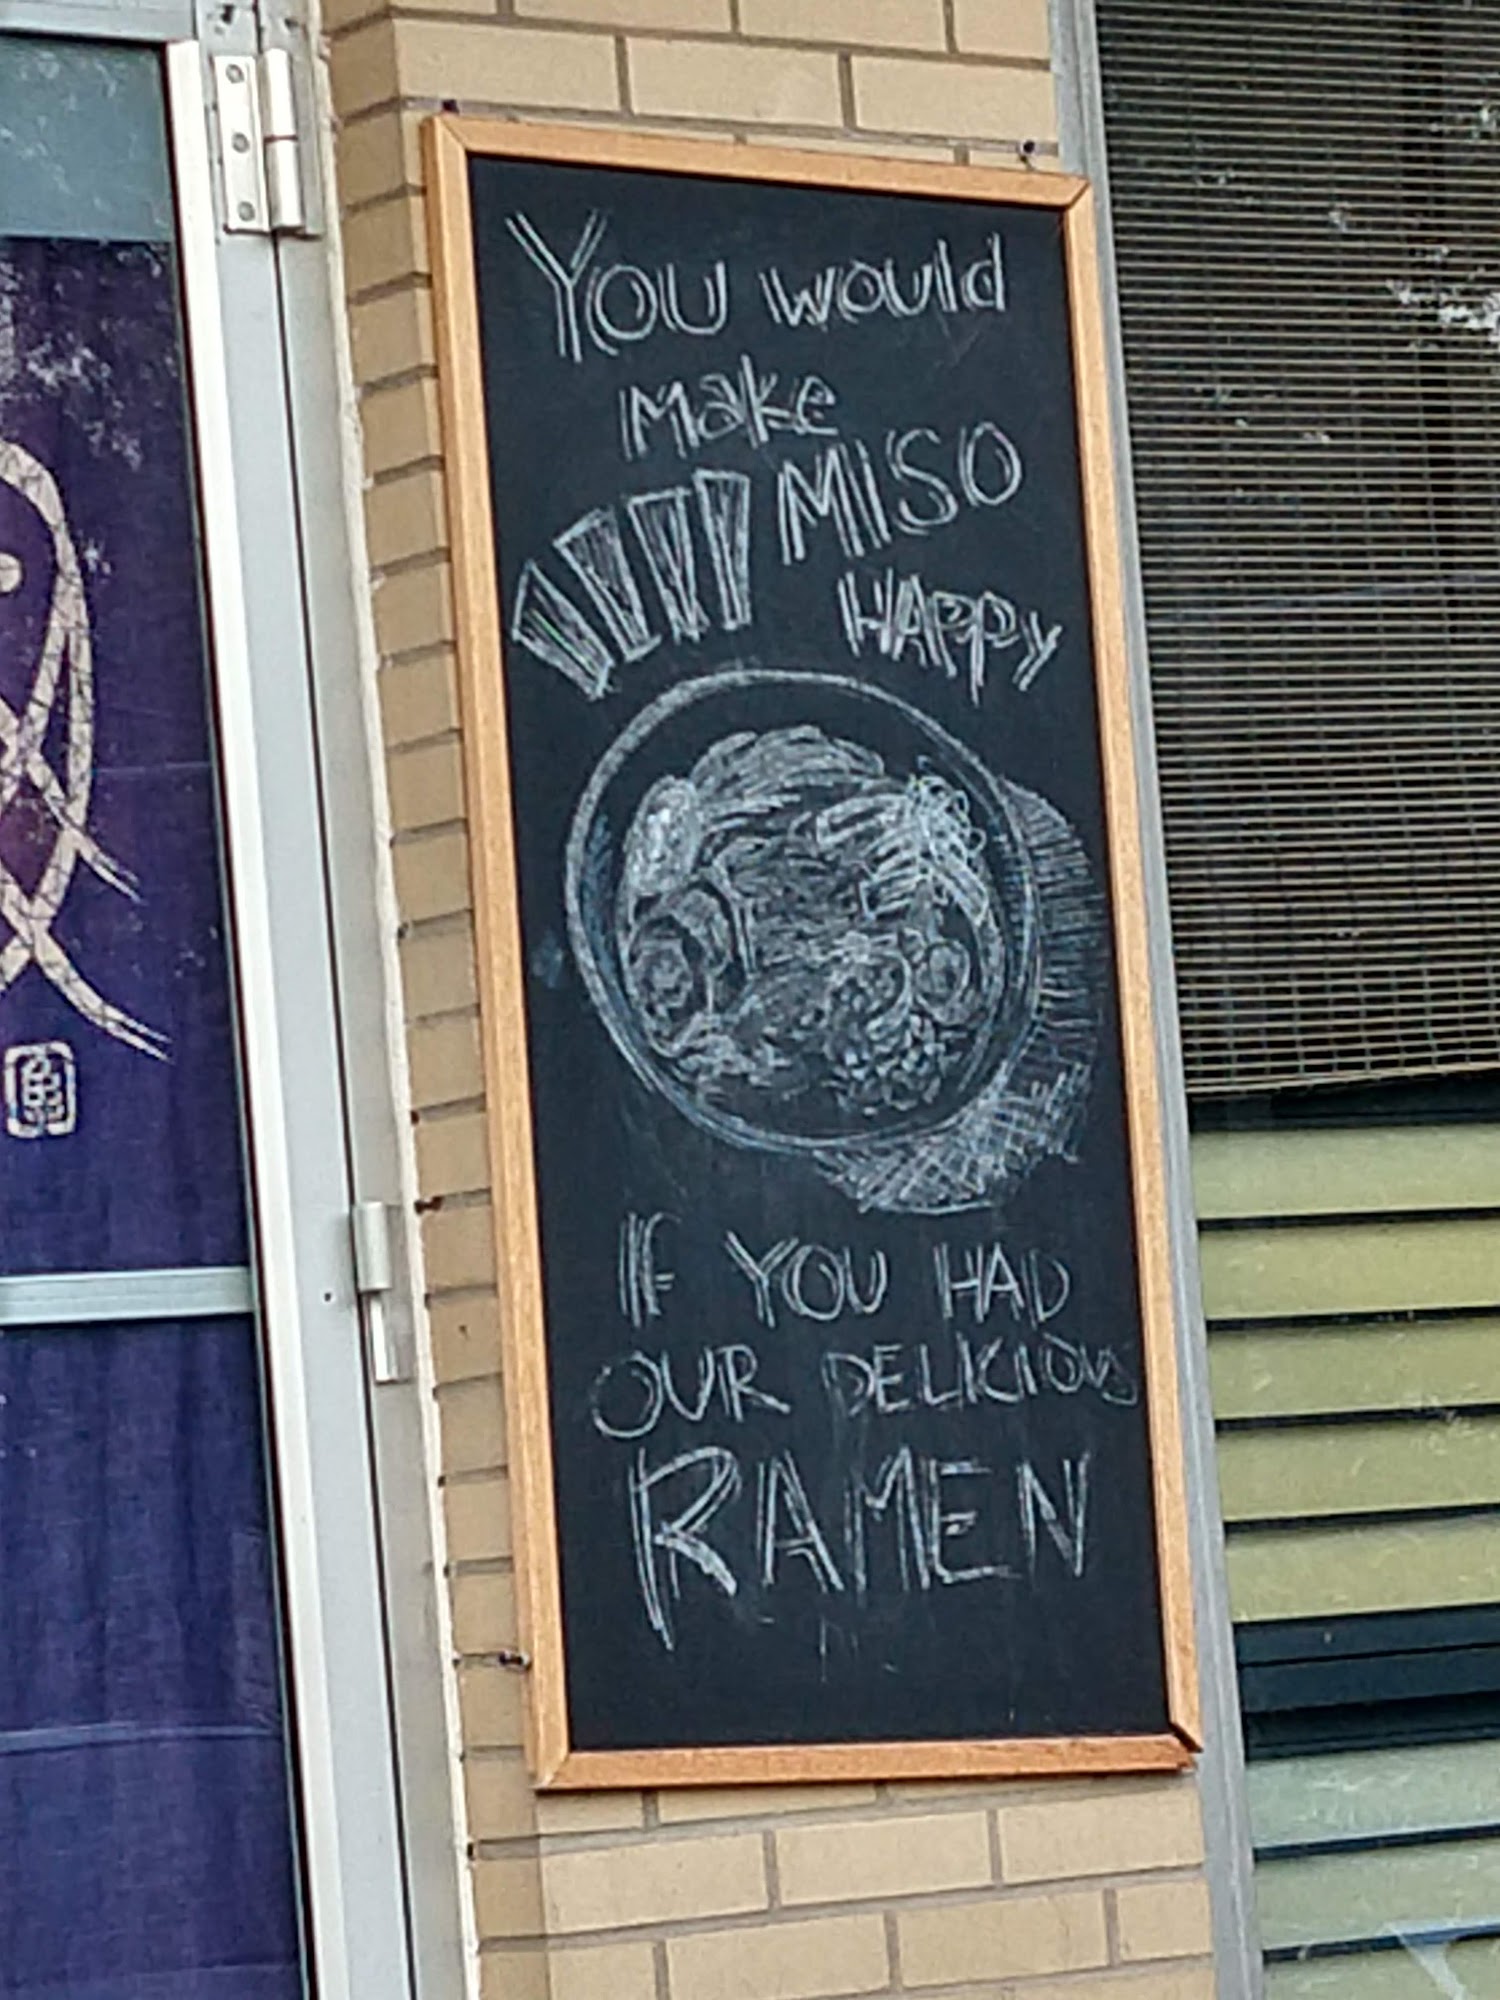 You would
make
MISO
HAPPY
IF YOU HAD
OUR DELICIOUS
RAMEN